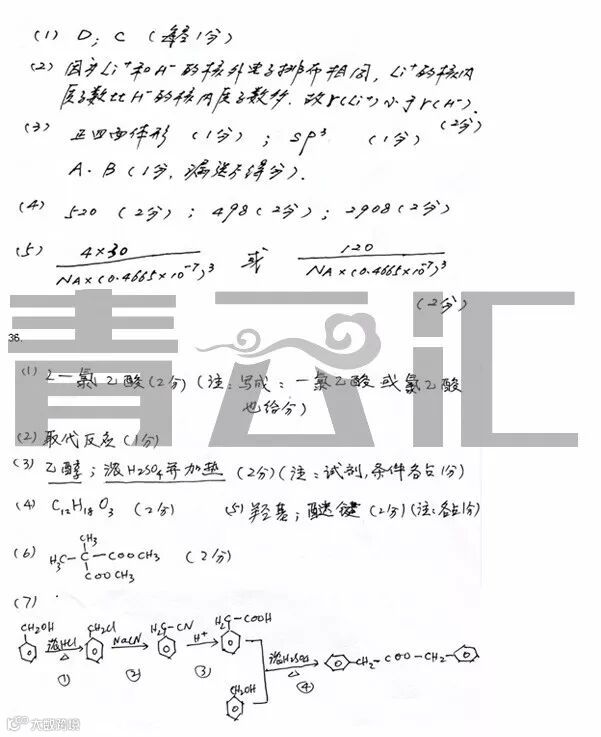 (1) D; C (每空1分)
(2) 因为Li⁺和H⁻的核外电子排布相同, Li⁺的核内
质子数比H⁻的核内质子数多. 故r(Li⁺)小于r(H⁻). (2分)
(3) 正四面体形 (1分) ; sp³ (1分)
A. B (1分, 漏选不得分).
(4) 520 (2分) ; 498(2分) ; 2908(2分)
(5) 4×30 / NA×(0.4665×10⁻⁷)³ 或 120 / NA×(0.4665×10⁻⁷)³
(2分)
青云汇
36.
(1) 2-氯乙酸(2分) (注: 写成: 一氯乙酸 或 氯乙酸
也给分)
(2) 取代反应 (1分)
(3) 乙醇 ; 浓H₂SO₄并加热 (2分)(注: 试剂,条件各占1分)
(4) C₁₂H₁₈O₃ (2分) (5) 羟基; 醚键 (2分)(注:各占1分)
(6) CH₃ (2分)
H₃C-C-COOCH₃
COOCH₃
(7)
CH₂OH 浓HCl △ ① CH₂Cl NaCN ② H₂C-CN H⁺ ③ H₂C-COOH
CH₂OH 浓H₂SO₄ △ ④ CH₂-COO-CH₂
大数跨境